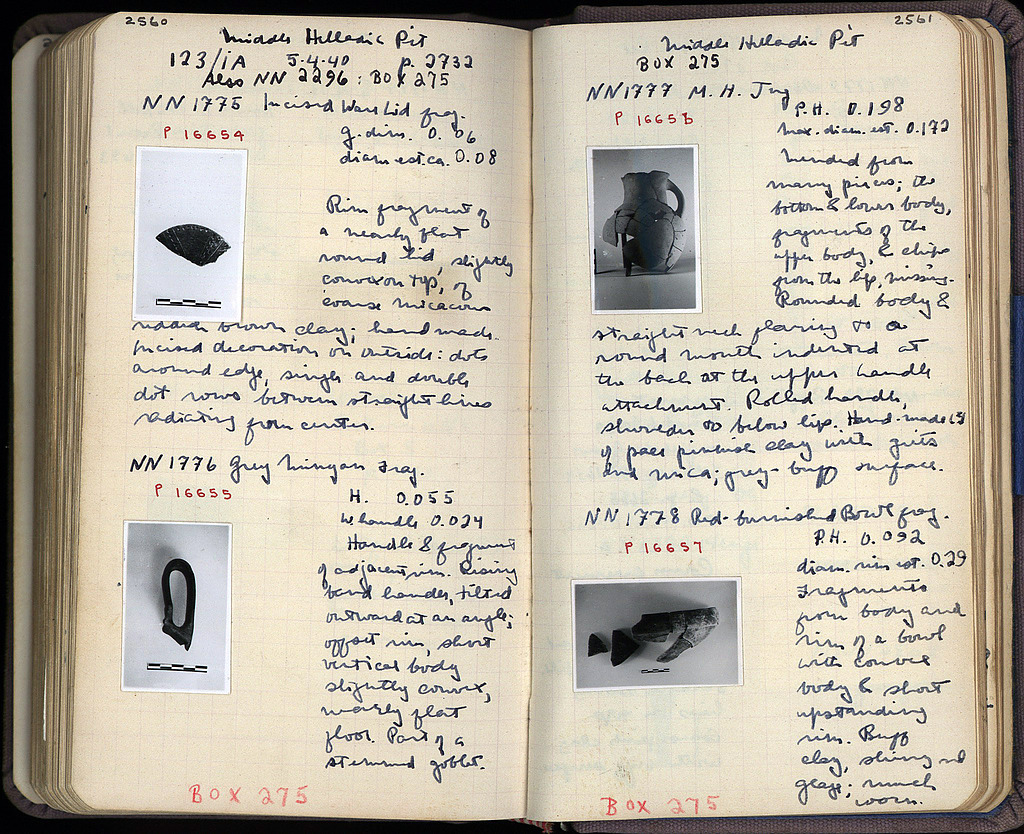 2560
Middle Helladic Pit
123/IA 5-4-40 p. 2732
Also NN 2296: BOX 275
NN 1775 Incised Ware Lid frag.
P 16654
g. dim. 0.06
diam. est. ca. 0.08
Rim fragment of
a nearly flat
round lid, slightly
convex on top, of
coarse micaceous
reddish brown clay; handmade.
Incised decoration on outside: dots
around edge, single and double
dot rows between straight lines
radiating from center.
NN 1776 Grey Minyan frag.
P 16655
H. 0.055
W handle 0.024
Handle & fragment
of adjacent rim. Rising
band handle, tilted
outward at an angle;
offset rim, short
vertical body
slightly convex,
nearly flat
floor. Part of a
stemmed goblet.
BOX 275
2561
Middle Helladic Pit
BOX 275
NN 1777 M. H. Jug
P 16656
P.H. 0.198
max. diam. est. 0.172
Mended from
many pieces; the
bottom & lower body,
fragments of the
upper body, & chips
from the lip, missing.
Rounded body &
straight neck flaring to a
round mouth indented at
the back at the upper handle
attachment. Rolled handle,
shoulder to below lip. Hand-made
of pale pinkish clay with grits
and mica; grey-buff surface.
NN 1778 Red-burnished Bowl frag.
P 16657
P.H. 0.092
diam. rim est. 0.29
Fragments
from body and
rim of a bowl
with convex
body & short
upstanding
rim. Buff
clay, shiny red
glaze; much
worn.
BOX 275